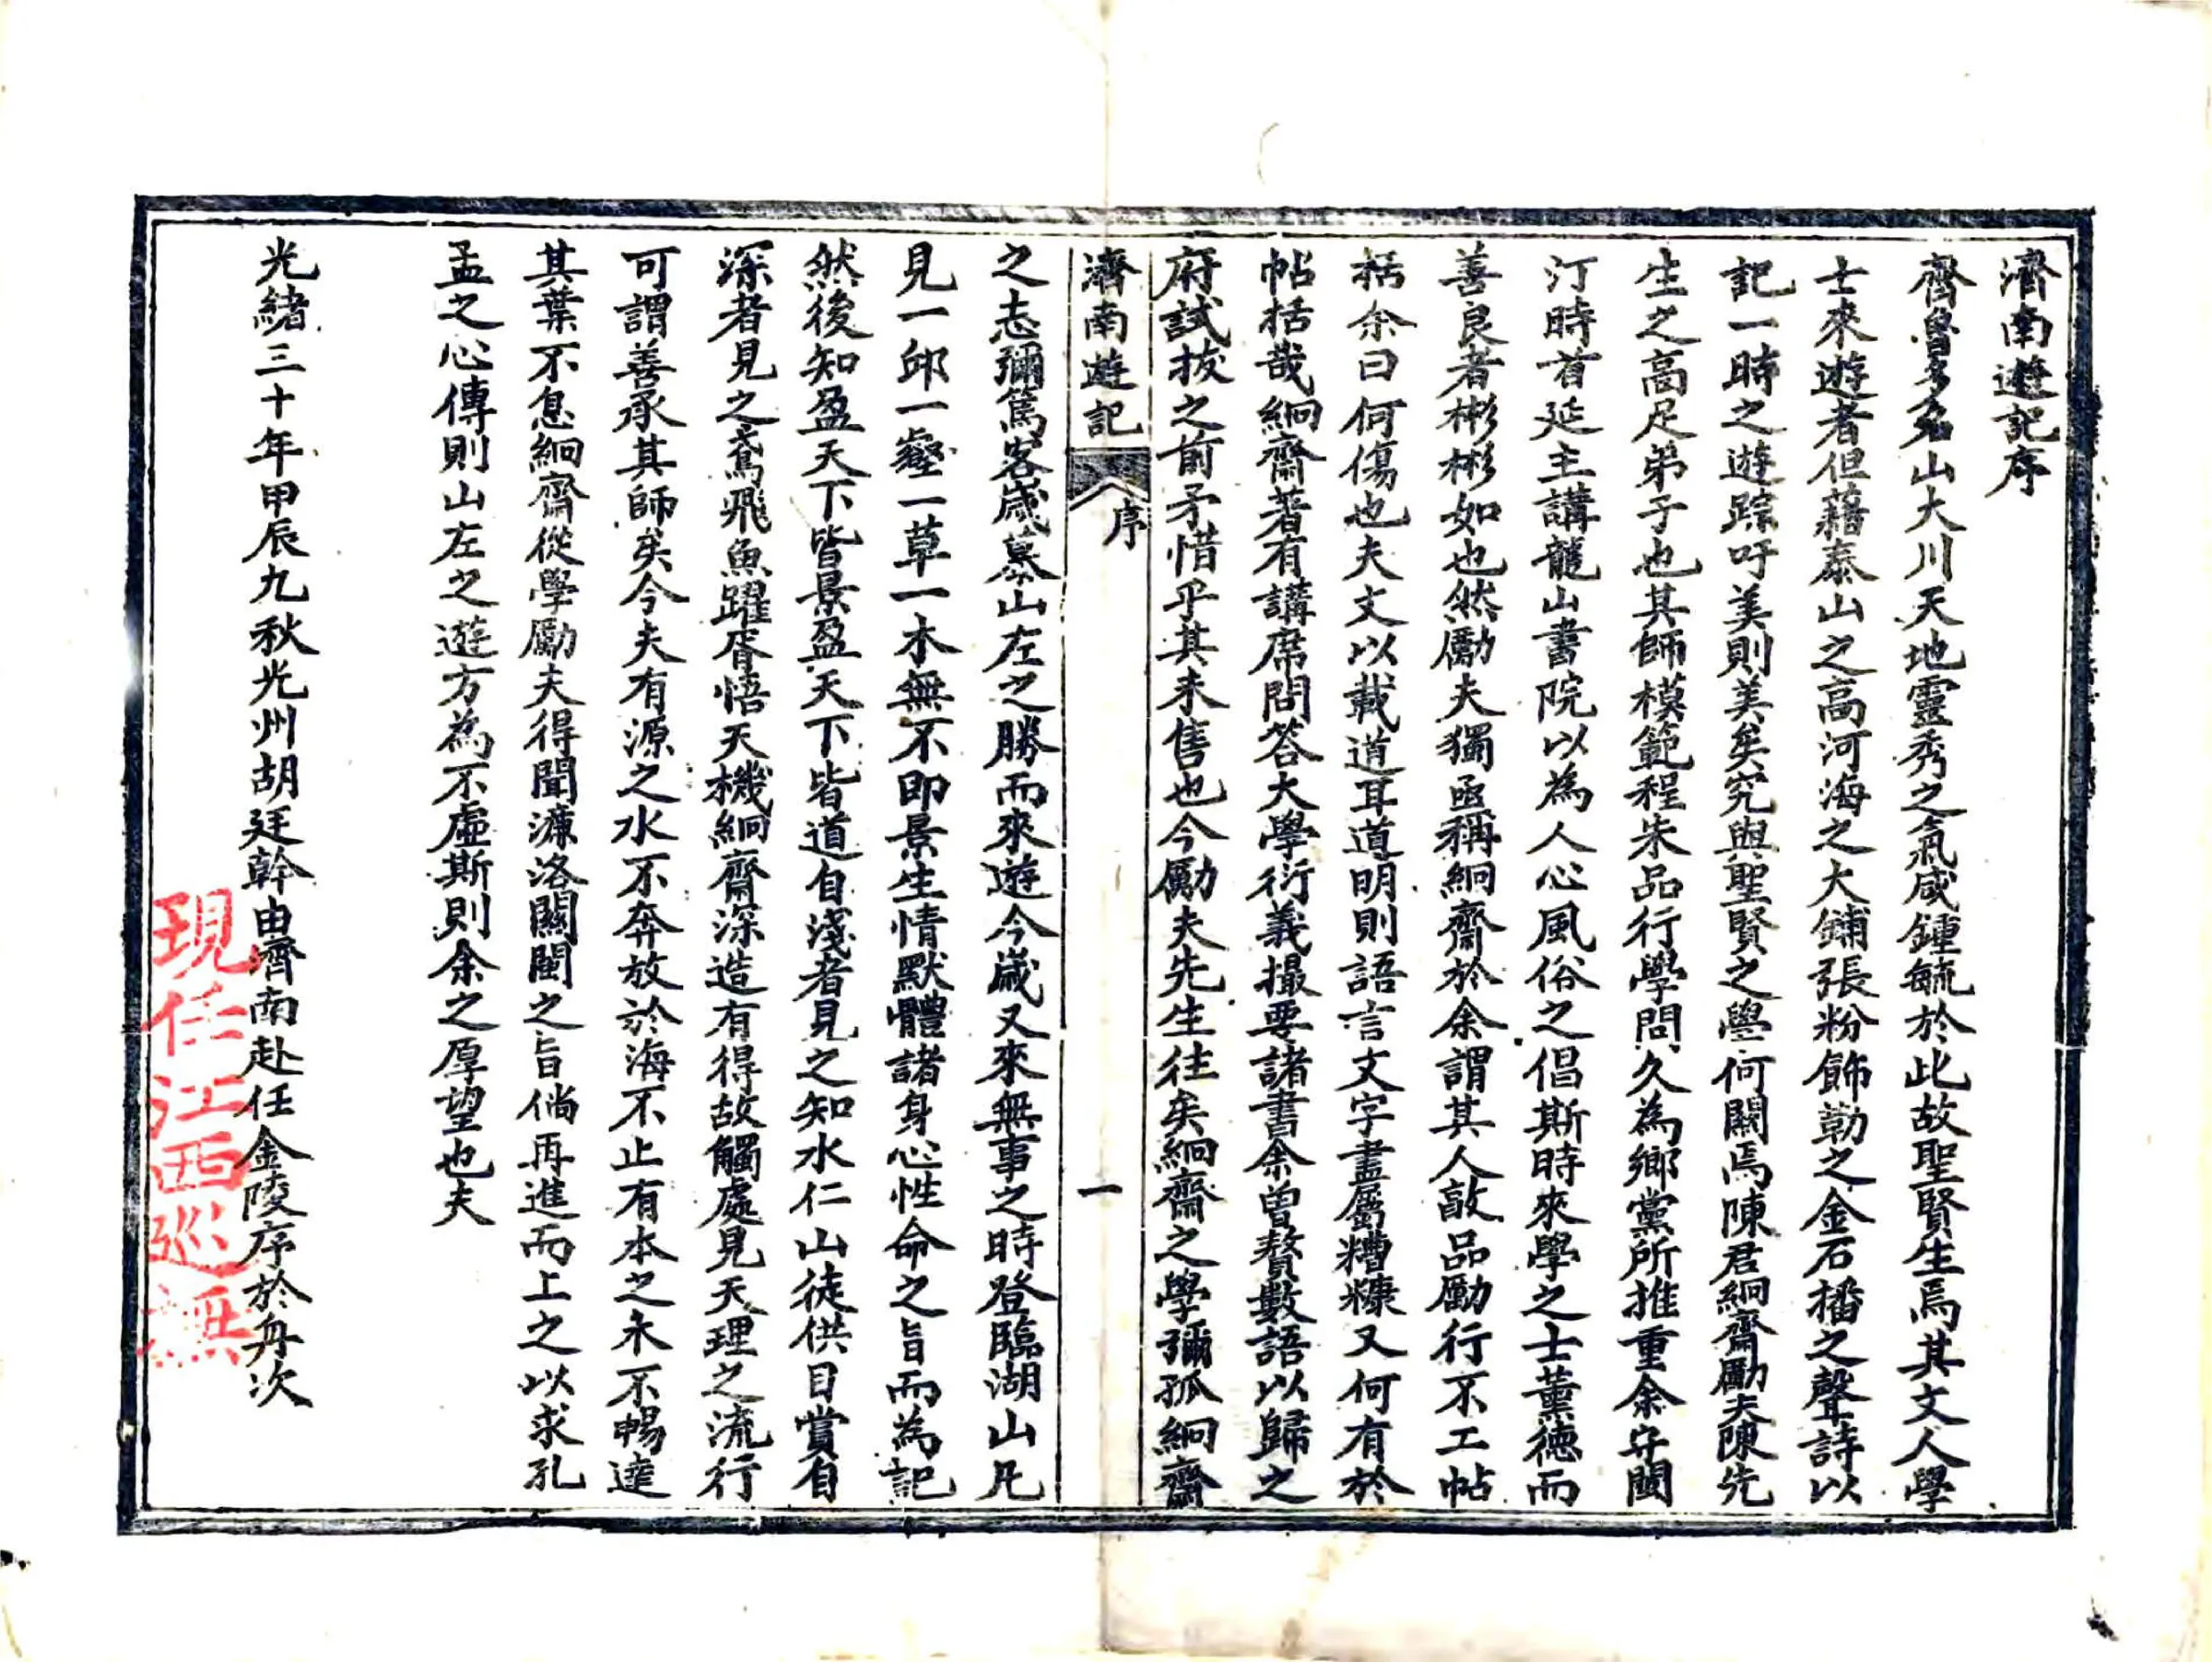 濟南遊記序
齊魯多名山大川天地靈秀之氣咸鍾毓於此故聖賢生焉其文人學
士來遊者但藉泰山之高河海之大鋪張粉飾勒之金石播之聲詩以
記一時之遊踪吁美則美矣究與聖賢之學何關焉陳君絅齋勵夫陳先
生之高足弟子也其師模範程朱品行學問久為鄉黨所推重余守閩
汀時首延主講龍山書院以為人心風俗之倡斯時來學之士薰德而
善良者彬彬如也然勵夫獨亟稱絅齋於余謂其人敦品勵行不工帖
括余曰何傷也夫文以載道耳道明則語言文字盡屬糟糠又何有於
帖括哉絅齋著有講席問答大學衍義撮要諸書余曾贅數語以歸之
府試拔之前矛惜乎其未售也今勵夫先生往矣絅齋之學彌孤絅齋
濟南遊記
序
一
之志彌篤客歲慕山左之勝而來遊今歲又來無事之時登臨湖山凡
見一邱一壑一草一木無不即景生情默體諸身心性命之旨而為記
然後知盈天下皆景盈天下皆道自淺者見之知水仁山徒供目賞自
深者見之鳶飛魚躍胥悟天機絅齋深造有得故觸處見天理之流行
可謂善承其師矣今夫有源之水不奔放於海不止有本之木不暢達
其葉不息絅齋從學勵夫得聞濂洛關閩之旨倘再進而上之以求孔
孟之心傳則山左之遊方為不虛斯則余之厚望也夫
光緒三十年甲辰九秋光州胡廷幹由濟南赴任金陵序於舟次
現任江西巡撫